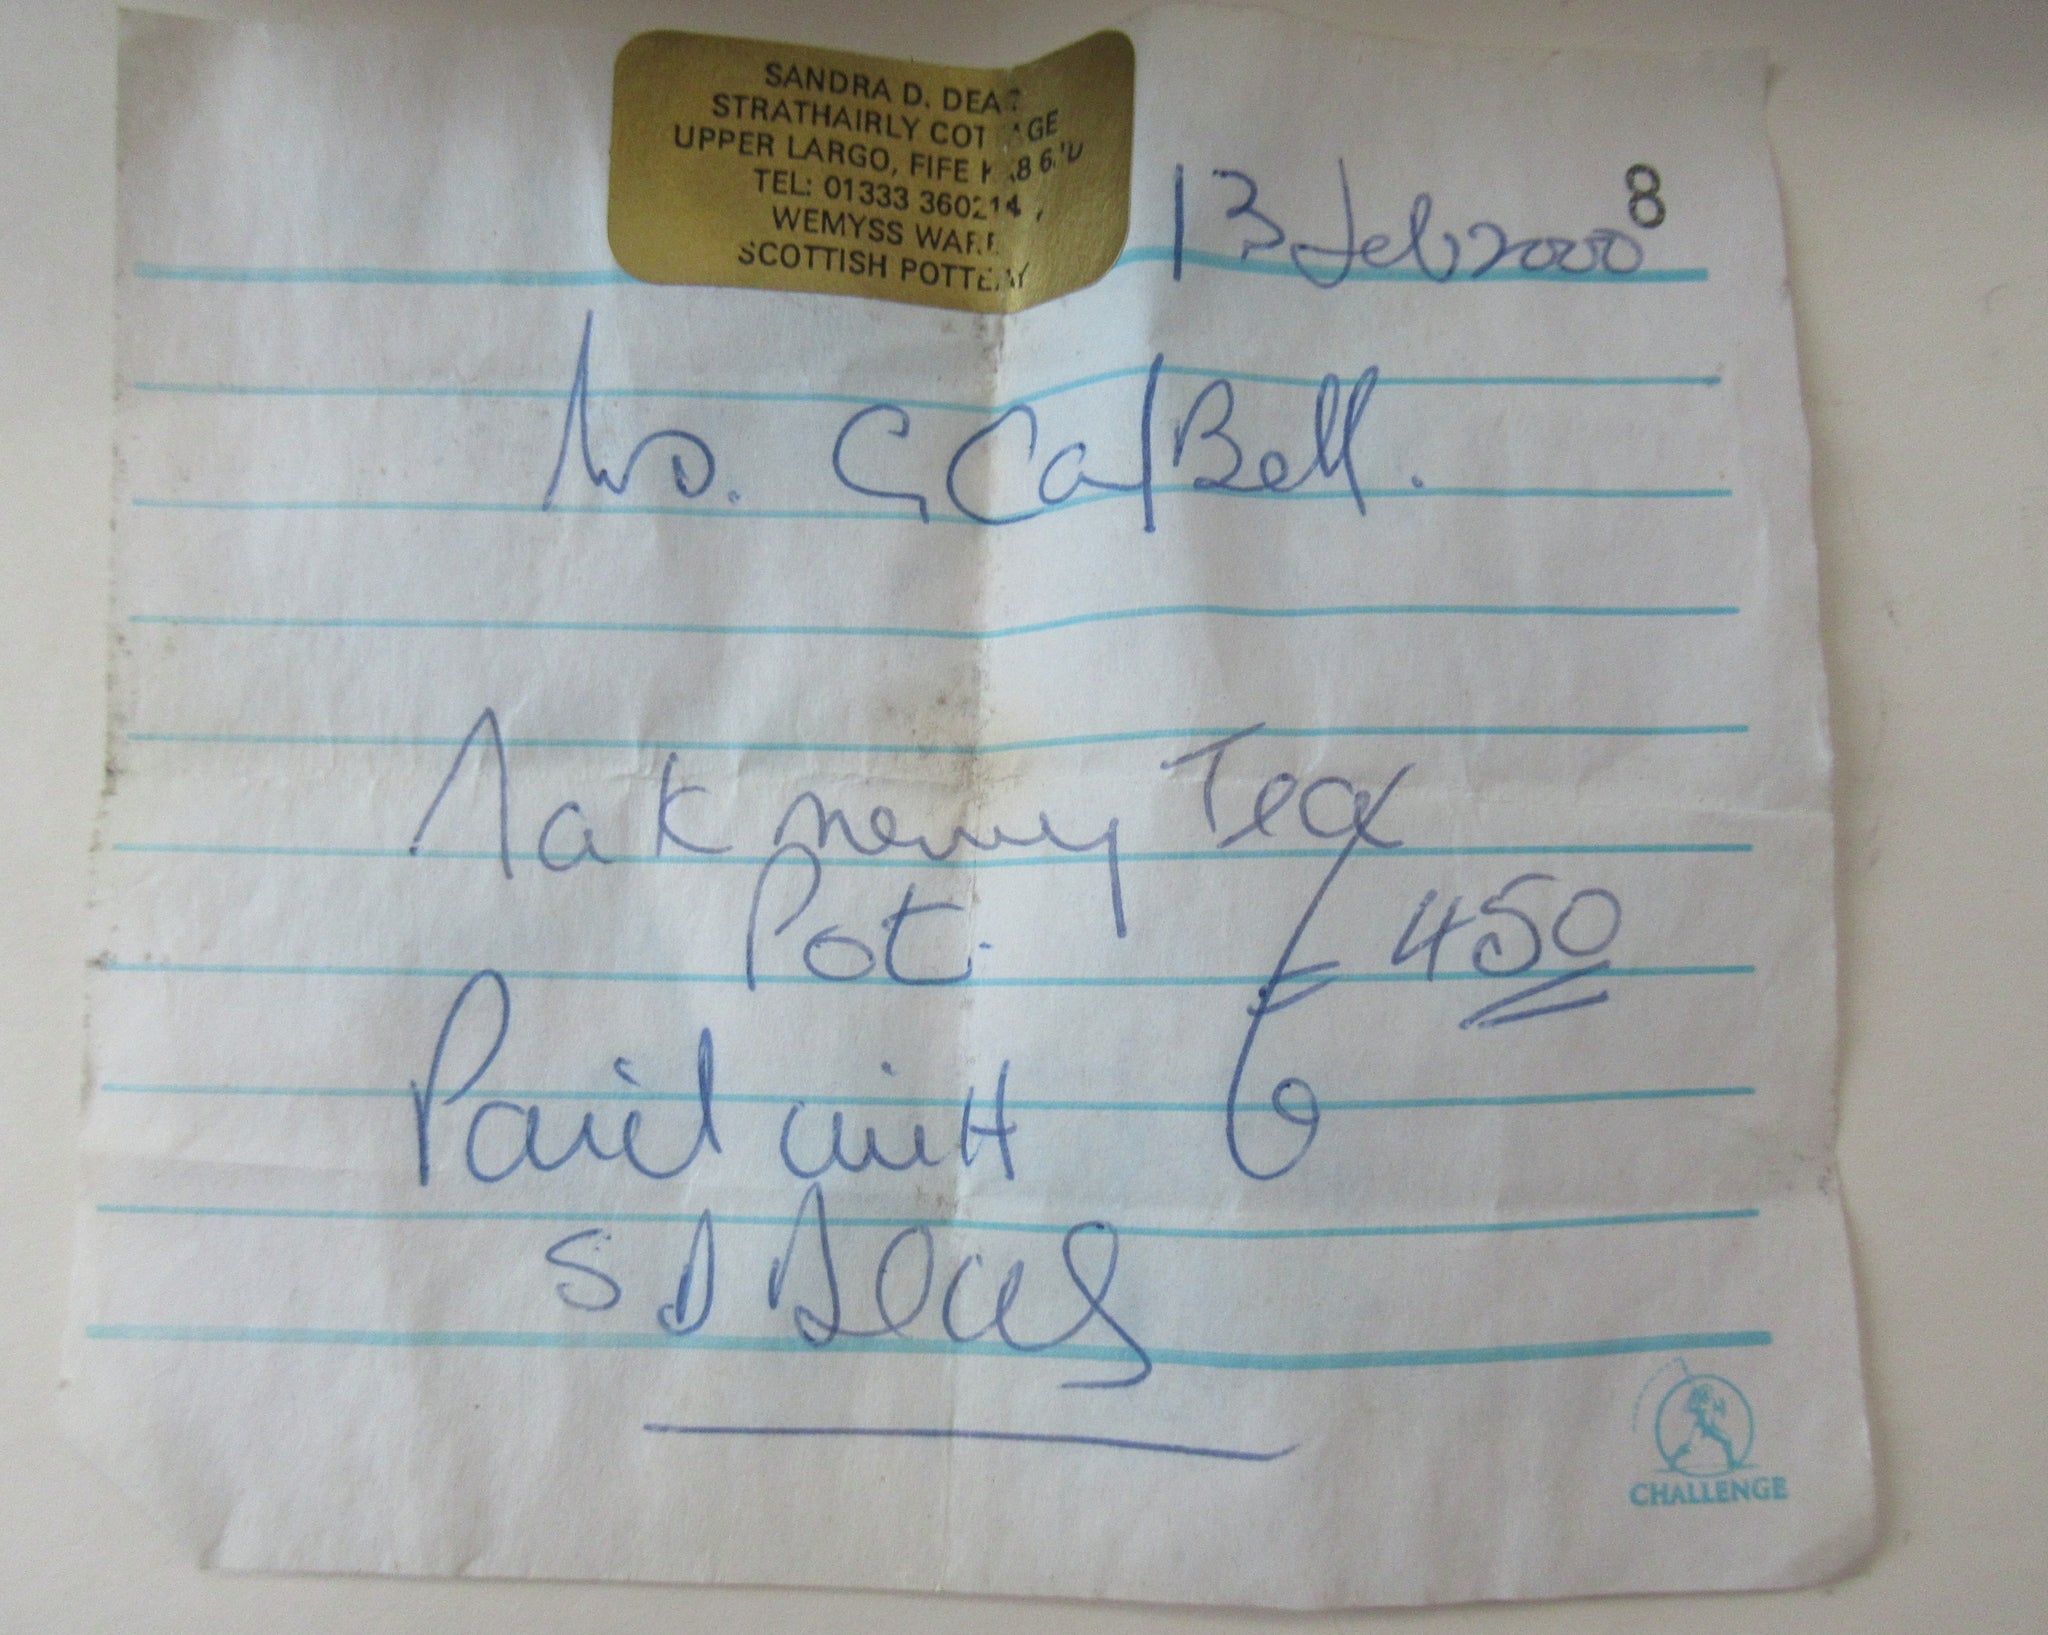 SANDRA D. DEAS
STRATHAIRLY COTTAGE
UPPER LARGO, FIFE
TEL: 01333 360214
WEMYSS WARE
SCOTTISH POTTERY
8
13 Feb 2000
G Bell.
Jak Tea
Pot. £450
Paid with
S D Deas
CHALLENGE